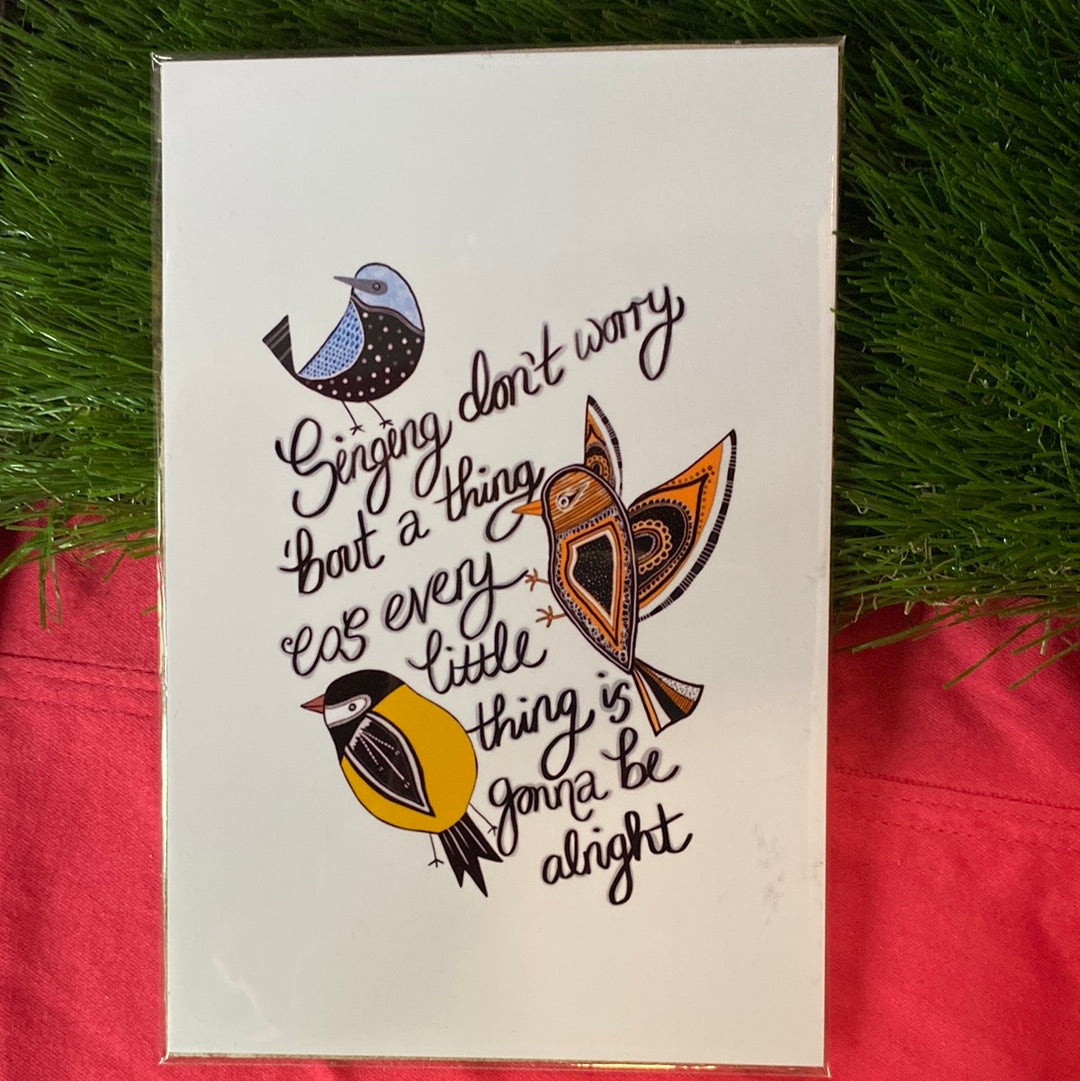 Singing don't worry
'bout a thing
cos every
little
thing is
gonna be
alright